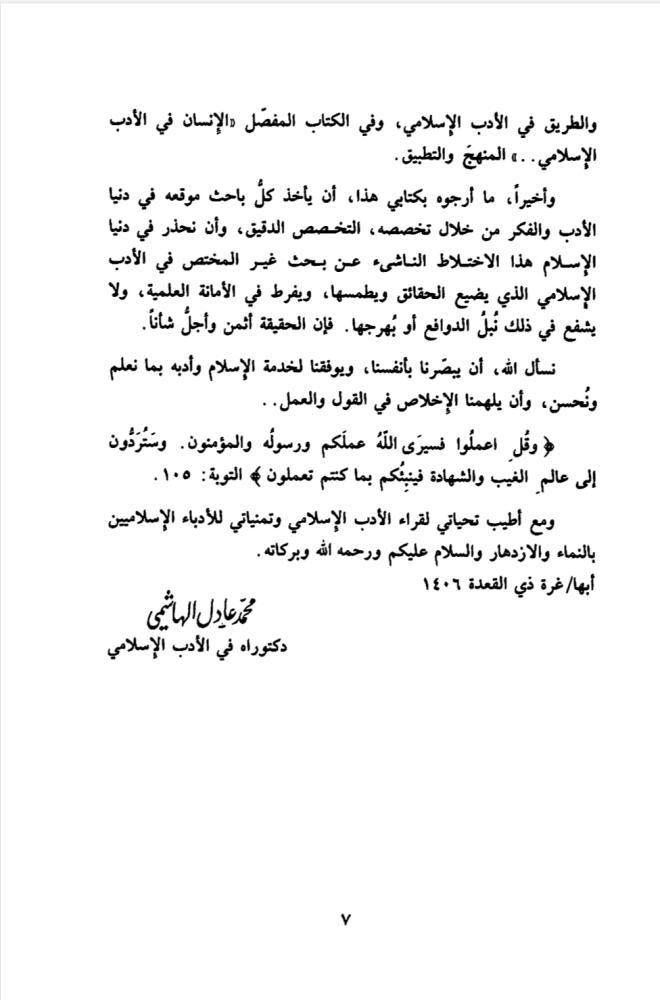 والطريق في الأدب الإسلامي، وفي الكتاب المفصّل «الإنسان في الأدب
الإسلامي..» المنهجَ والتطبيق.
وأخيراً، ما أرجوه بكتابي هذا، أن يأخذ كلُّ باحث موقعه في دنيا
الأدب والفكر من خلال تخصصه، التخصص الدقيق، وأن نحذر في دنيا
الإسلام هذا الاختلاط الناشىء عن بحث غير المختص في الأدب
الإسلامي الذي يضيع الحقائق ويطمسها، ويفرط في الأمانة العلمية، ولا
يشفع في ذلك نُبلُ الدوافع أو بُهرجها. فإن الحقيقة أثمن وأجلُّ شأناً.
نسأل الله، أن يبصّرنا بأنفسنا، ويوفقنا لخدمة الإسلام وأدبه بما نعلم
ونُحسن، وأن يلهمنا الإخلاص في القول والعمل..
﴿ وقُلِ اعملُوا فسيرَى اللّهُ عملَكم ورسولُه والمؤمنون. وسَتُرَدُّون
إلى عالمِ الغيب والشهادة فينبِئُكم بما كنتم تعملون ﴾ التوبة: ١٠٥.
ومع أطيب تحياتي لقراء الأدب الإسلامي وتمنياتي للأدباء الإسلاميين
بالنماء والازدهار والسلام عليكم ورحمه الله وبركاته.
أبها/غرة ذي القعدة ١٤٠٦
محمّد عادل الهاشمي
دكتوراه في الأدب الإسلامي
٧